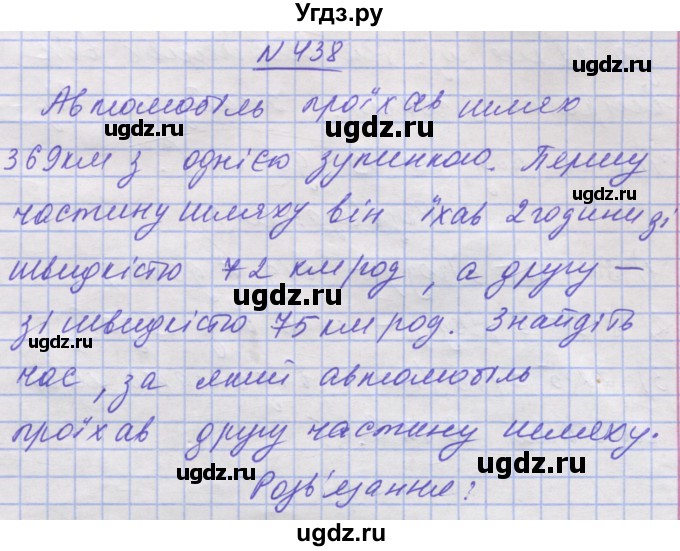 Угдз.ру
N 438
ugdz.ru
Автомобіль проїхав шлях
ugdz.ru ugdz.ru
369км з однією зупинкою. Першу
ugdz.ru
частину шляху він їхав 2 години зі
ugdz.ru
швидкістю 72 км/год, а другу –
ugdz.ru
зі швидкістю 75 км/год. Знайдіть
ugdz.ru ugdz.ru
час, за який автомобіль
ugdz.ru
проїхав другу частину шляху.
ugdz.ru ugdz.ru
Розв'язання:
ugdz.ru